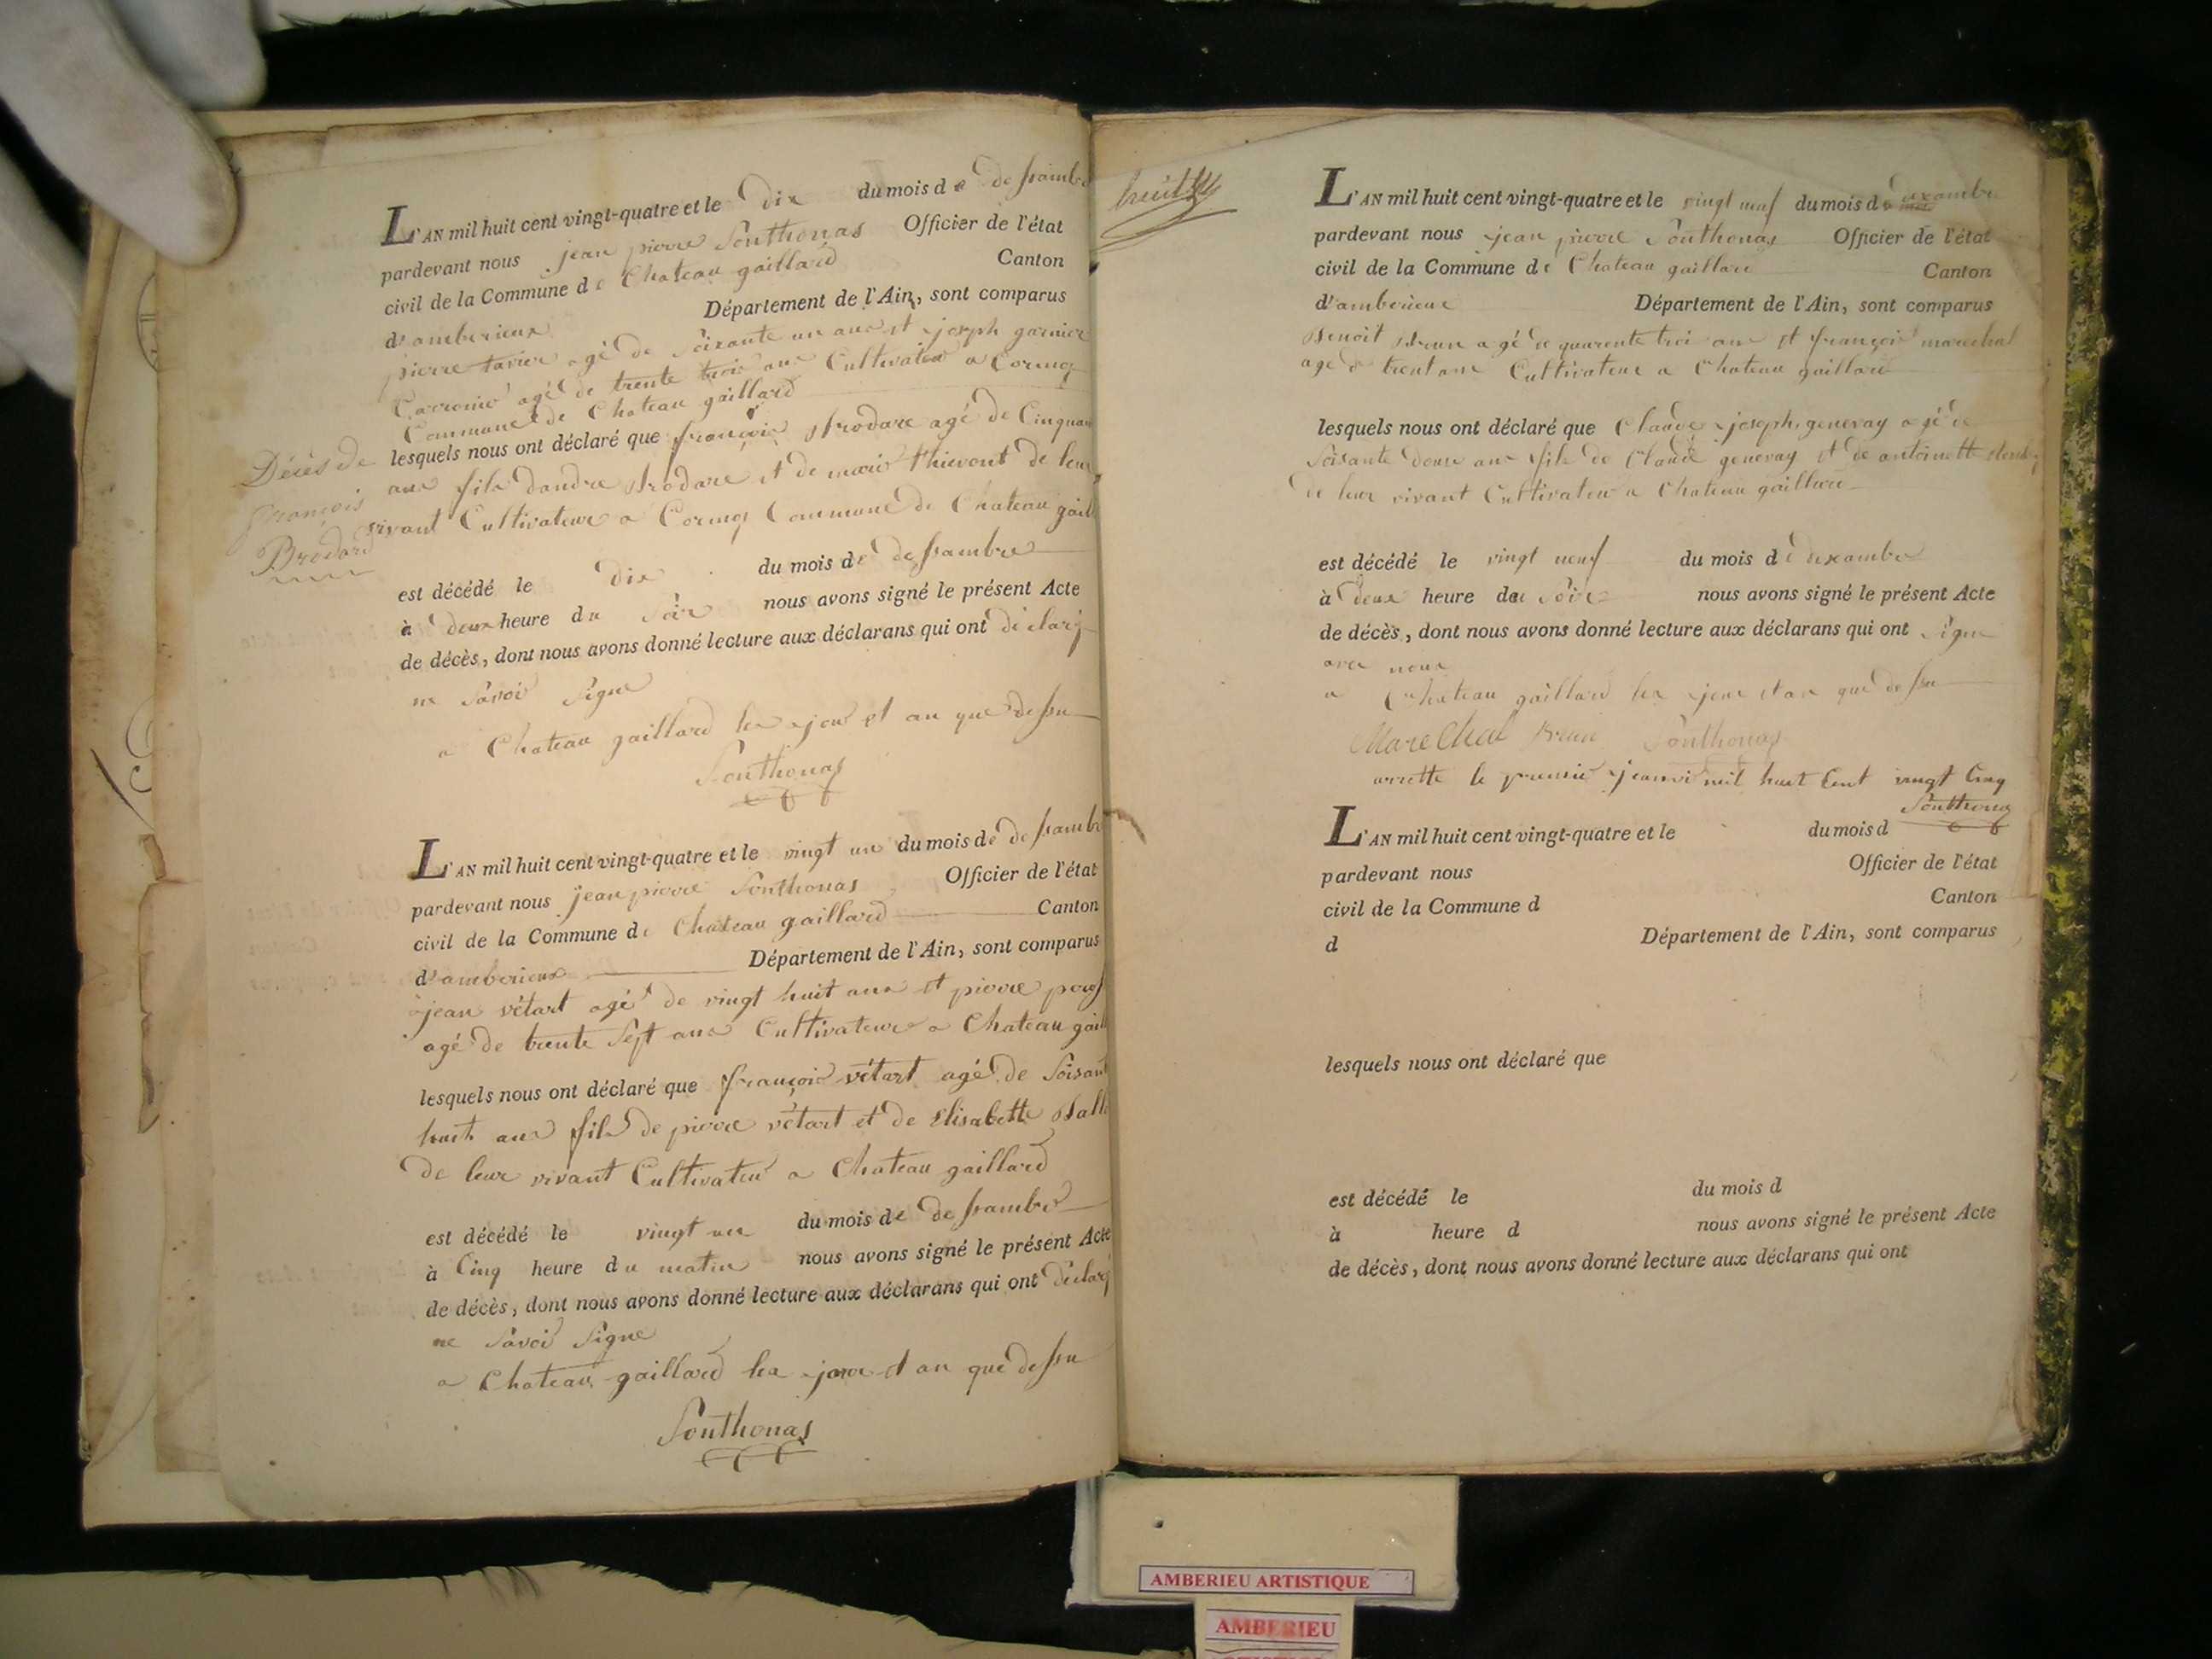 L'AN mil huit cent vingt-quatre et le Dix du mois de dessambre
pardevant nous jean pierre Sonthonas Officier de l'état
civil de la Commune de Chateau gaillard Canton
d'amberieux Département de l'Ain, sont comparus
pierre tavier agé de soixante un ans et joseph garnier
agé de trente trois ans Cultivateur a Cormoz
Commune de Chateau gaillard
Décès de
François
Brodard
lesquels nous ont déclaré que françois Brodare agé de Cinquan
ans fils dandre Brodare et de marie thievont de leur
vivant Cultivateur a Cormoz Commune de Chateau gaill
est décédé le dix du mois de dessambre
à deux heure du soir nous avons signé le présent Acte
de décès, dont nous avons donné lecture aux déclarans qui ont déclaré
ne savoir signe
a Chateau gaillard les jour et an que dessu
Sonthonas
L'AN mil huit cent vingt-quatre et le vingt un du mois de dessambr
pardevant nous jean pierre Sonthonas Officier de l'état
civil de la Commune de Chateau gaillard Canton
d'amberieux Département de l'Ain, sont comparus
jean vétart agé de vingt huit ans et pierre
agé de trente Sept ans Cultivateur a Chateau gaill
lesquels nous ont déclaré que françois vétart agé de Soisant
huit ans fils de pierre vétart et de Elisabette Ball
de leur vivant Cultivateur a Chateau gaillard
est décédé le vingt un du mois de dessambre
à Cinq heure du matin nous avons signé le présent Acte
de décès, dont nous avons donné lecture aux déclarans qui ont déclaré
ne savoir signe
a Chateau gaillard les jour et an que dessu
Sonthonas
huit
L'AN mil huit cent vingt-quatre et le vingt neuf du mois de dexambre
pardevant nous jean pierre Sonthonas Officier de l'état
civil de la Commune de Chateau gaillard Canton
d'amberieux Département de l'Ain, sont comparus
Benoit Brun agé de quarente troi ans et françois marechal
agé de trent ans Cultivateur a Chateau gaillard
lesquels nous ont déclaré que Claude joseph genevay agé de
Soisante douse ans fils de Claude genevay et de antoinette
de leur vivant Cultivateur a Chateau gaillard
est décédé le vingt neuf du mois de dexambre
à deux heure du soir nous avons signé le présent Acte
de décès, dont nous avons donné lecture aux déclarans qui ont signe
avec nous
a Chateau gaillard les jour et an que dessu
MareChal Brun Sonthonas
arrette le premie janvié mil huit Cent vingt Cinq
Sonthonas
L'AN mil huit cent vingt-quatre et le du mois d
pardevant nous Officier de l'état
civil de la Commune d Canton
d Département de l'Ain, sont comparus
lesquels nous ont déclaré que
est décédé le du mois d
à heure d nous avons signé le présent Acte
de décès, dont nous avons donné lecture aux déclarans qui ont
AMBERIEU ARTISTIQUE
AMBERIEU